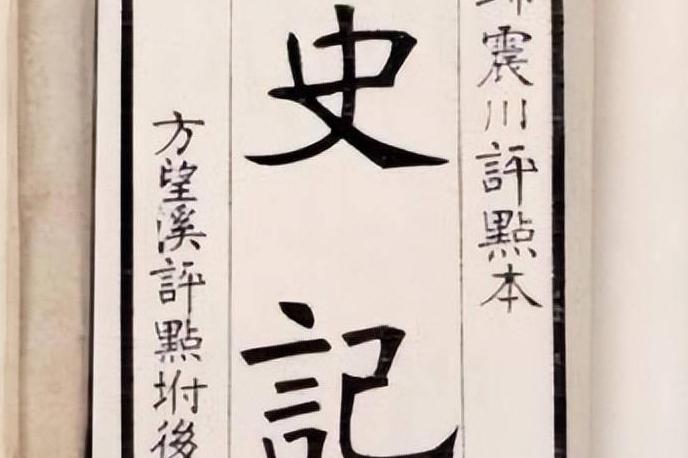 震川評點本
史記
方望溪評點坿後